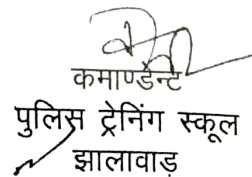 कमाण्डेन्ट
पुलिस ट्रेनिंग स्कूल
झालावाड़